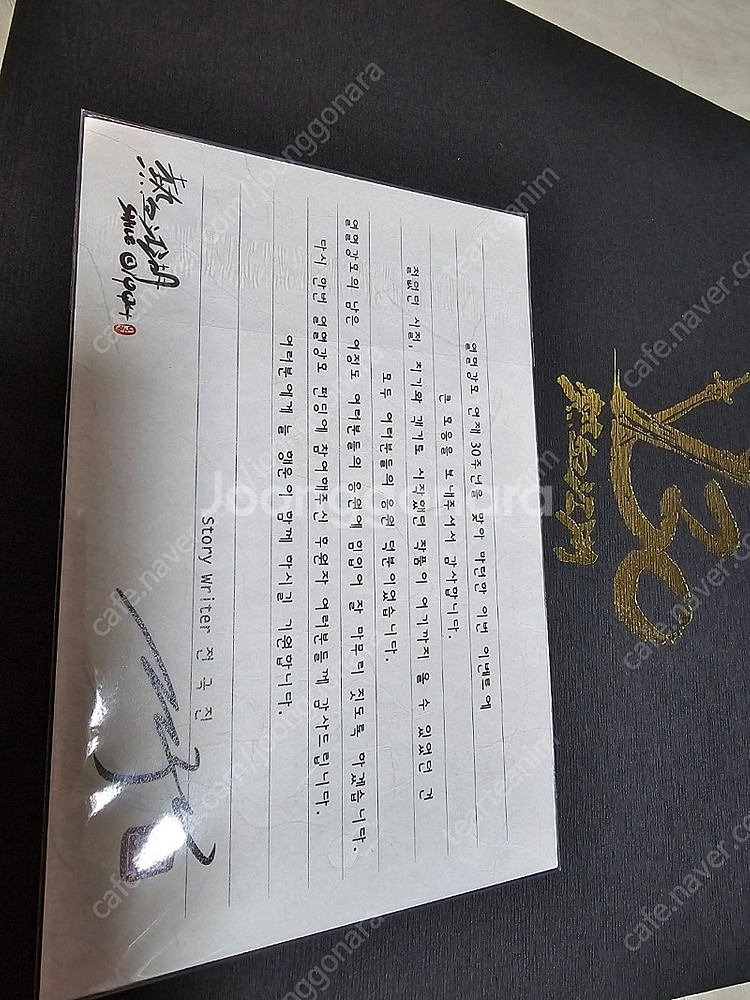 열혈강호 연재 30주년을 맞이 마련한 이번 이벤트에
큰 호응을 보내주셔서 감사합니다.
철없던 시절, 치기와 객기로 시작했던 작품이 여기까지 올 수 있었던 건
모두 여러분들의 응원 덕분이었습니다.
열혈강호의 남은 여정도 여러분들의 응원에 힘입어 잘 마무리 짓도록 하겠습니다.
다시 한번 열혈강호 펀딩에 참여해주신 후원자 여러분들께 감사드립니다.
여러분에게 늘 행운이 함께 하시길 기원합니다.
Story Writer 전극진
熱血江湖
SINCE 1994
30
熱血江湖
Joonggonara
cafe.naver.com/joonggonara
teartearnim